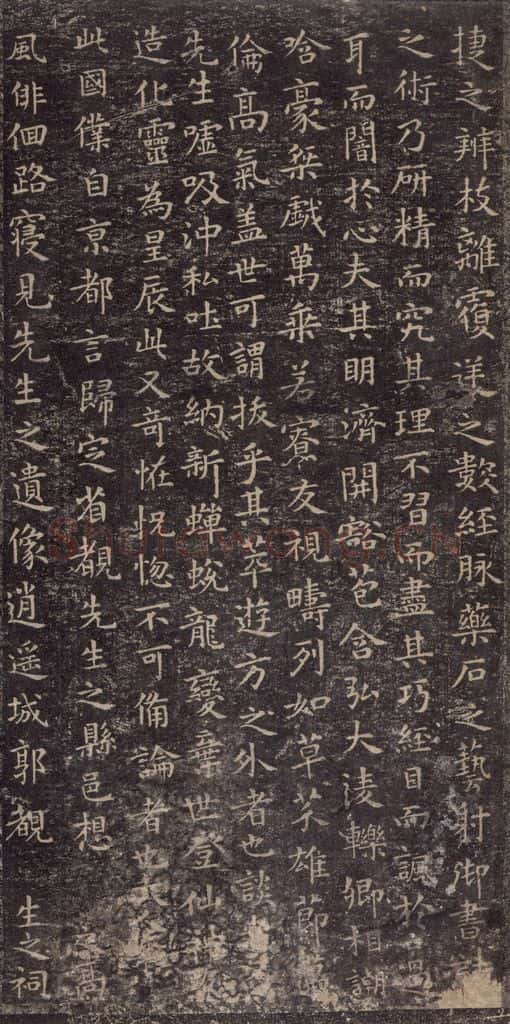 捷之辨枝離覆逆之數經脉藥石之藝射御書計
之術乃研精而究其理不習而盡其巧經目而諷於
耳而闇於心夫其明濟開豁苞含弘大淩轢卿相謿
哈豪桀戲萬乗若寮友視疇列如草芥雄節
倫高氣盖世可謂拔乎其萃遊方之外者也談
先生噓吸沖和吐故納新蟬蛻龍變棄世登仙神
造化靈為星辰此又奇怪怳惚不可備論者也
此國僕自京都言歸定省覩先生之縣邑想之高
風俳佪路寑見先生之遺像逍遥城郭覩生之祠
shufawang.cn